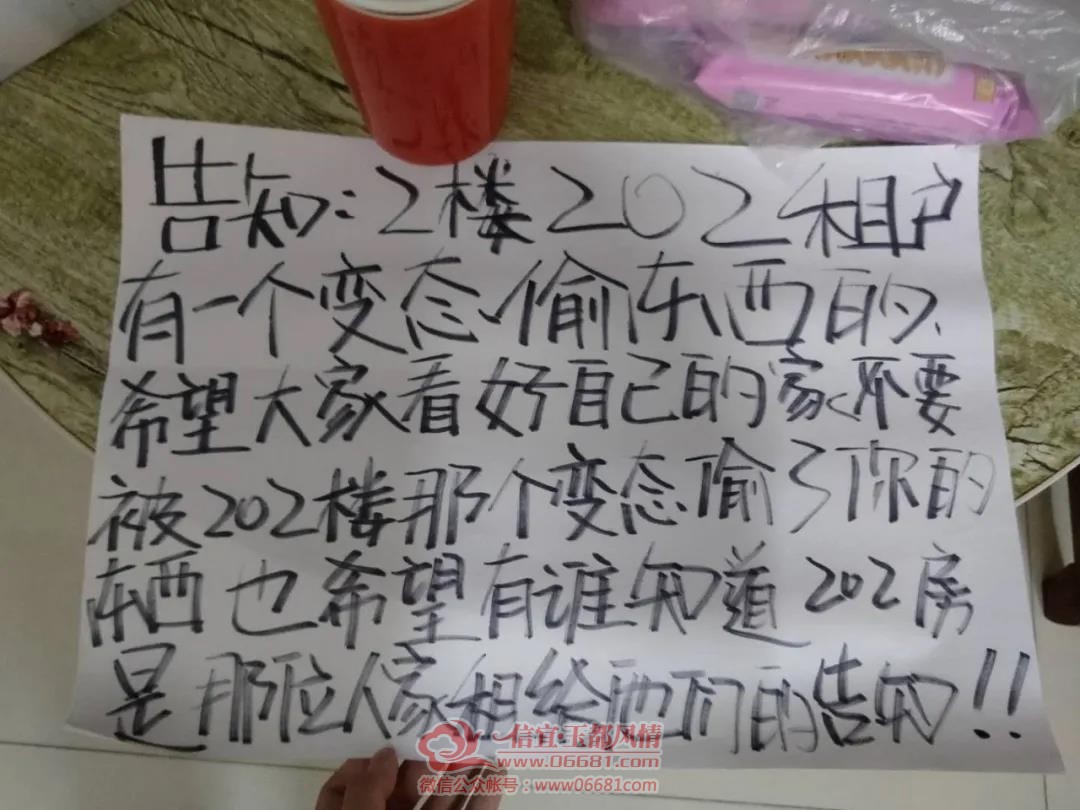 告知:2楼202相户
有一个变态偷东西的、
希望大家看好自己的家不要
被202楼那个变态偷了你的
东西也希望有谁知道202房
是那位人家相给他们的告知!!
信宜玉都风情
www.06681.com
微信公众帐号:www06681com